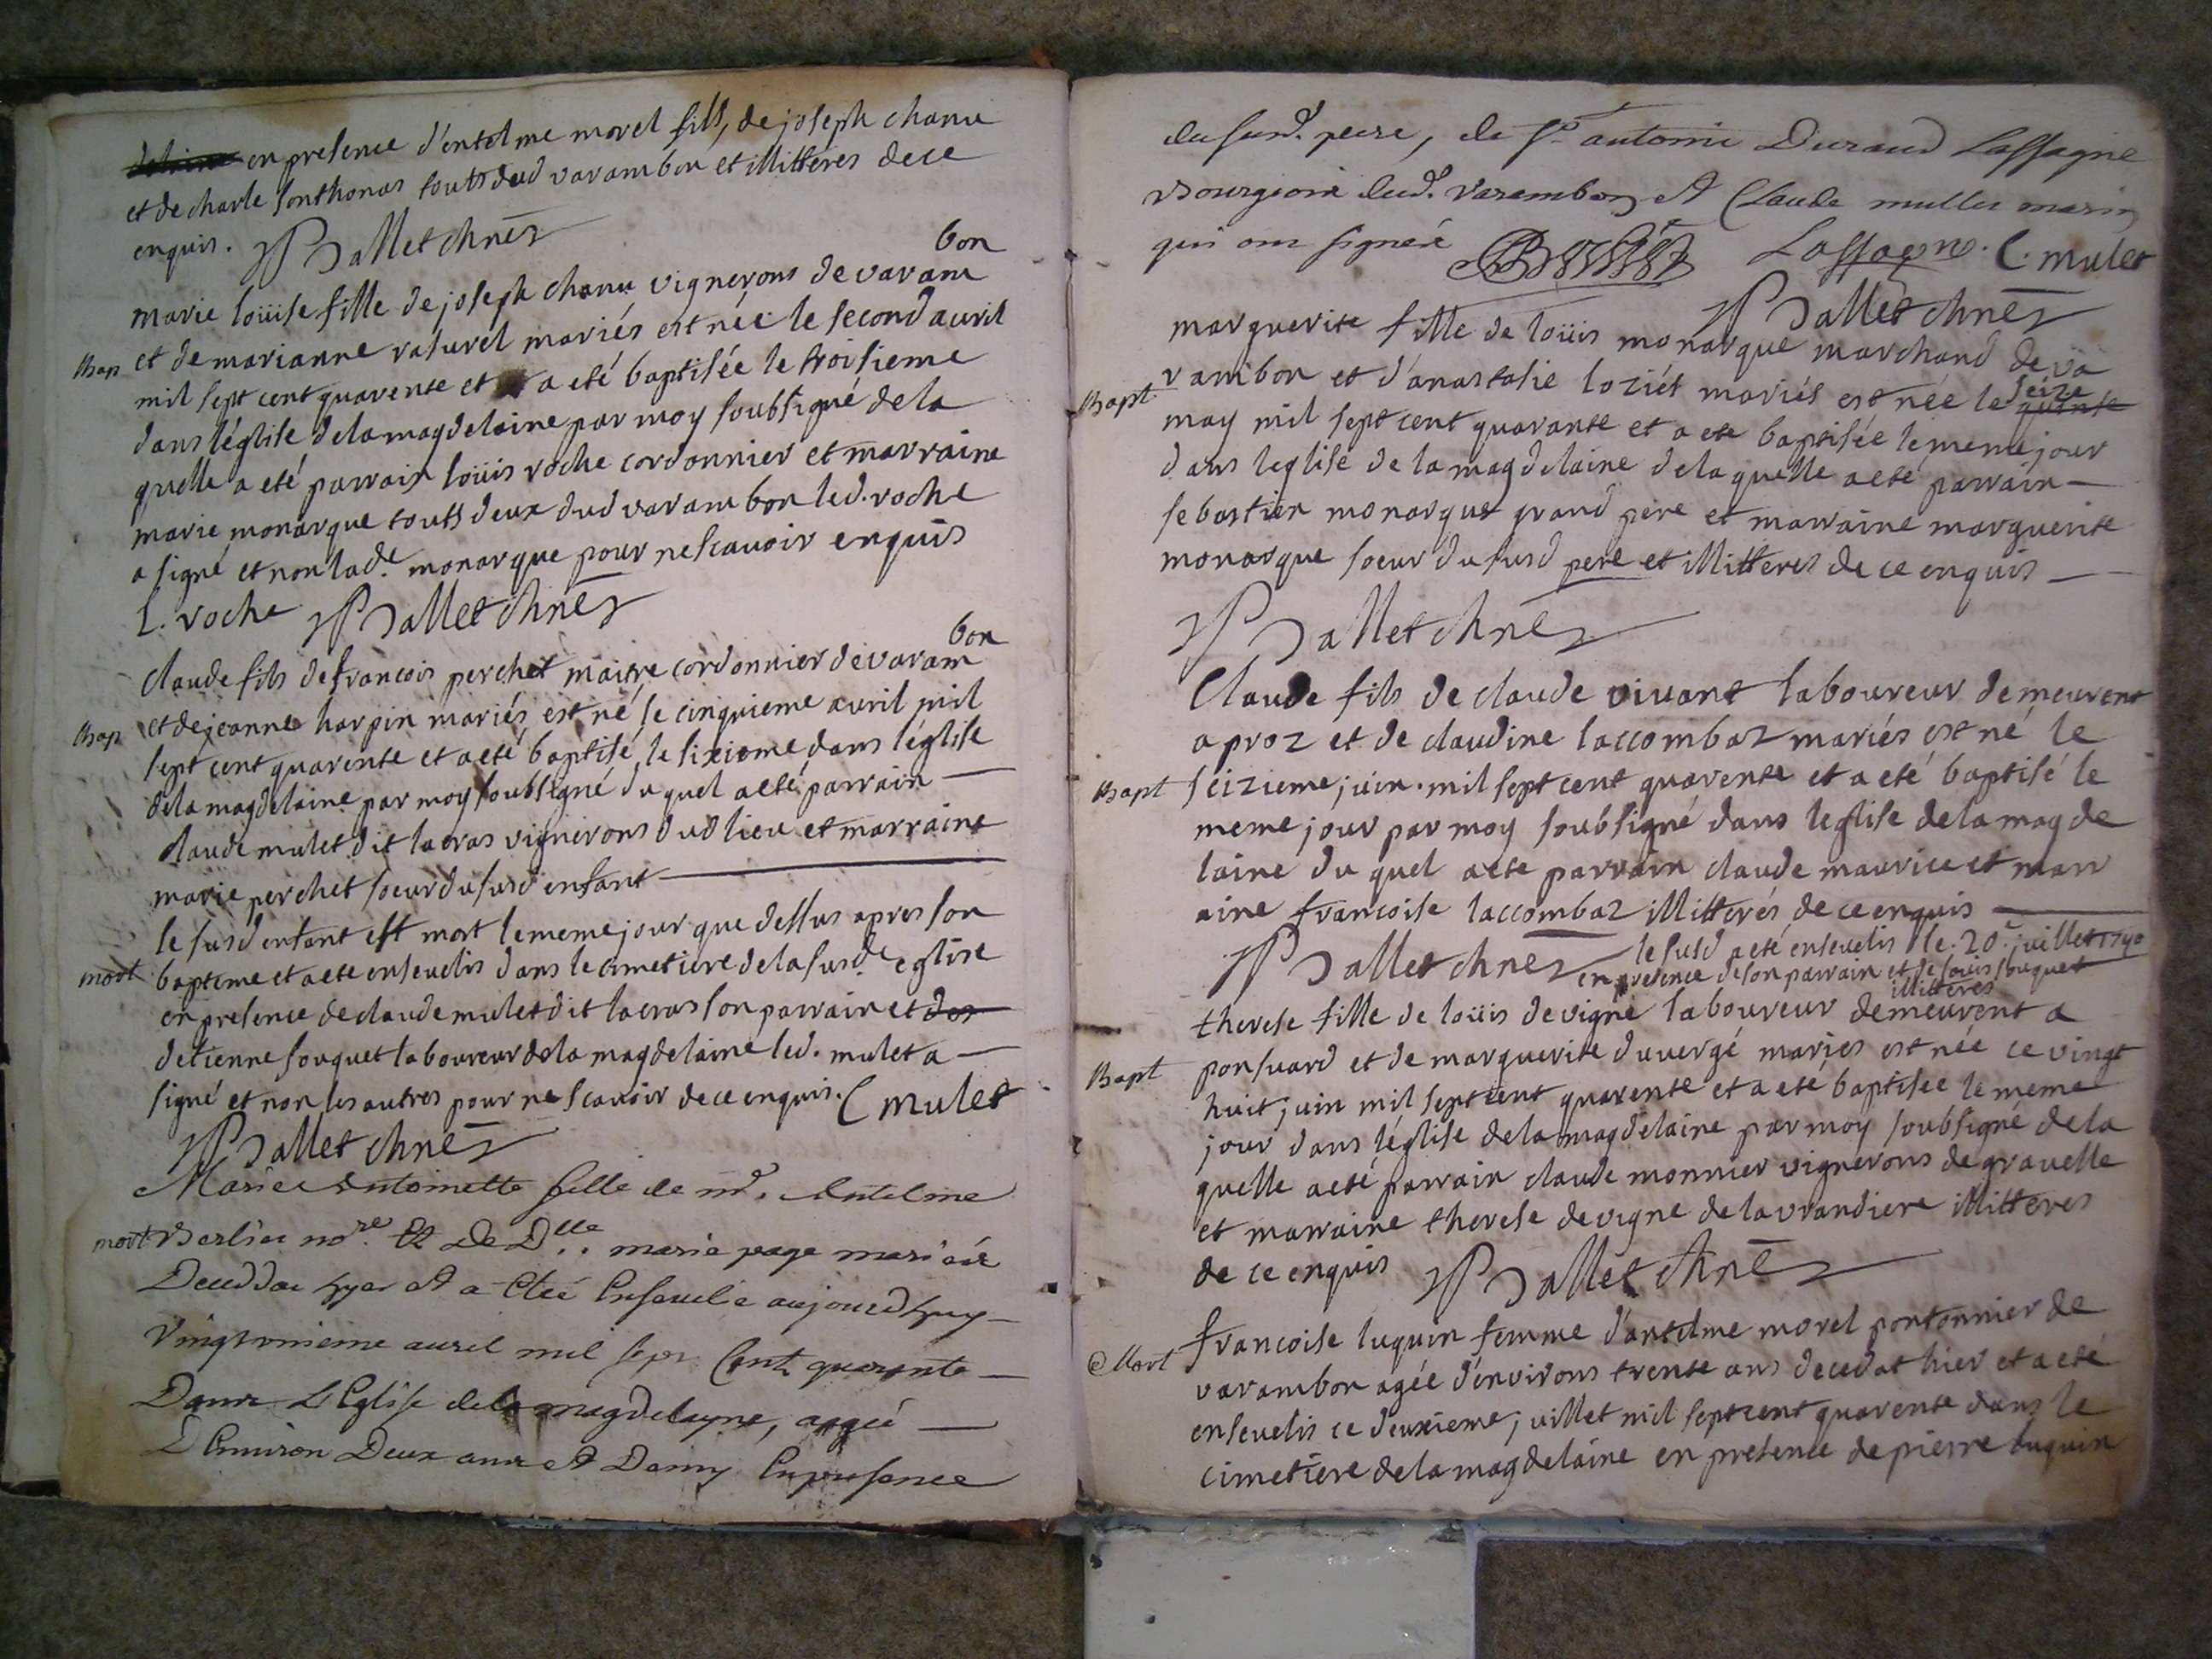 en presence d'entelme morel fils, de joseph chanu
et de charle sonthonas touts dud varambon et illitteres de ce
enquis. Ballet chne
bon
marie loüise fille de joseph chanu vignerons de varam
Bap et de marianne vaturel mariés est née le second avril
mil sept cent quarente et a eté baptisée le troisieme
dans léglise delamagdelaine par moy soubsigné dela
quelle a eté parrain loüis roche cordonnier et marraine
marie monarque touts deux dud varambon led. roche
a signé et non lade. monarque pour ne scavoir enquis
L. roche Ballet chne
bon
claude fils de francois perchet maitre cordonnier de varam
Bap et de jeanne harpin mariés est né le cinquieme avril mil
sept cent quarente et a eté baptisé le sixieme dans léglise
dela magdelaine par moy soubsigné du quel a eté parrain
claude mulet dit lacras vignerons dud lieu et marraine
marie perchet soeur du susd enfant
le susd enfant est mort le meme jour que dessus apres son
mort bapteme et a ete ensevelis dans le cimetiere dela susde eglise
en presence de claude mulet dit lacras son parrain et des
detienne souquet laboureur dela magdelaine led. mulet a
signé et non les autres pour ne scavoir de ce enquis. C mulet
Ballet chne
Marie Antoinette fille de md. Antelme
mort Berlier nore. Et De Dlle.. marie page mariés
Deceddée hyer et a Eté Ensevelie aujourdhuy
Vingtroisieme avril mil sept Cent quarante
Dans L'Eglise dela magdelayne, aagée
D'Environ Deux ans et Demy En presence
du susd. pere, de Sr. antoine Durand Lassagne
Bourgeois dud. Varambon et Claude mullet marin
qui ont signéz Lassagne. C. mulet
Ballet chne
marguerite fille de loüis monarque marchand de va
rambon et d'anastasie loziét mariés est née le seize quinse
Bapt. may mil sept cent quarante et a ete baptisée le meme jour
dans leglise de la magdelaine delaquelle a ete parrain
sebastien monarque grand pere et marraine marguerite
monarque soeur du susd pere et illitteres de ce enquis
Ballet chne
Claude fils de claude vivant laboureur demeurent
a proz et de claudine laccombaz mariés est né le
Bapt seizieme juin. mil sept cent quarente et a eté baptisé le
meme jour par moy soubsigné dans leglise dela magde
laine du quel a ete parrain claude maurice et marr
aine francoise laccombaz illitterés de ce enquis
Ballet chne le susd a eté ensevelis le. 20e. juillet 1740
en presence de son parrain et de loüis souquet
illitteres
therese fille de loüis devigne laboureur demeurent a
Bapt ponsuard et de marguerite duvergé mariés est née ce vingt
huit juin mil sept cent quarente et a eté baptisee le meme
jour dans léglise dela magdelaine par moy soubsigné dela
quelle a eté parrain claude monnier vignerons de gravelle
et marraine therese devigne de lavrandiere illitteres
de ce enquis Ballet chne
francoise luquin femme d'antelme morel pontonnier de
Mort varambon agée d'environs trente ans decedat hier et a eté
ensevelis ce deuxieme juillet mil sept cent quarente dans le
cimetiere dela magdelaine en presence de pierre luquin